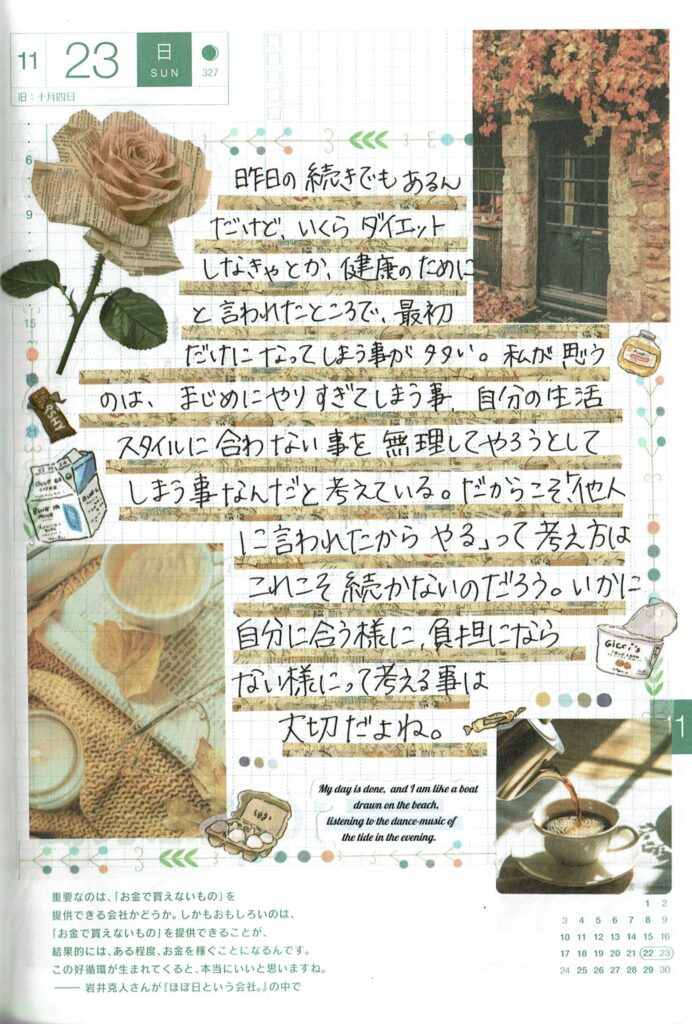 11 23 日 SUN 327
旧：十月四日
6
9
15
21
昨日の続きでもあるん
だけど、いくら ダイエット
しなきゃとか、健康のために
と言われたところで、最初
だけになってしまう事が多い。私が思う
のは、まじめにやりすぎてしまう事、自分の生活
スタイルに合わない事を無理してやろうとして
しまう事なんだと考えている。だからこそ「他人
に言われたから やる」って考え方は
これこそ続かないのだろう。いかに
自分に合う様に、負担になら
ない様にって考える事は
大切だよね。
Gicci's
11
My day is done, and I am like a boat
drawn on the beach,
listening to the dance-music of
the tide in the evening.
重要なのは、「お金で買えないもの」を
提供できる会社かどうか。しかもおもしろいのは、
「お金で買えないもの」を提供できることが、
結果的には、ある程度、お金を稼ぐことになるんです。
この好循環が生まれてくると、本当にいいと思いますね。
―― 岩井克人さんが『ほぼ日という会社。』の中で
1 2
3 4 5 6 7 8 9
10 11 12 13 14 15 16
17 18 19 20 21 22 23
24 25 26 27 28 29 30